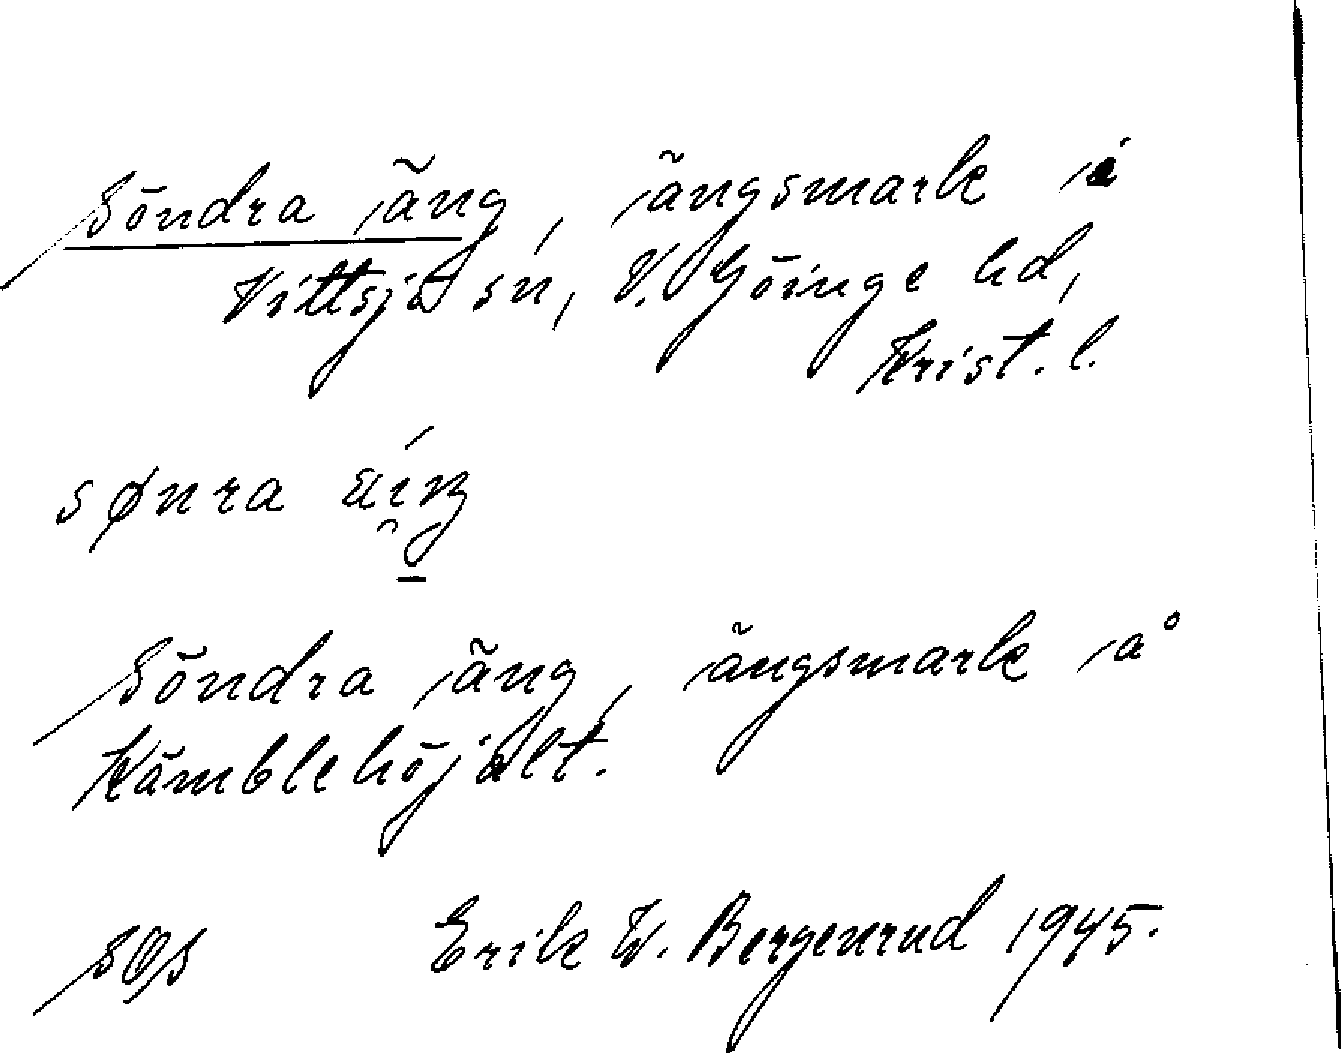 Söndra äng, ängsmark i
Vittsjö sn, V. Göinge hd,
Krist. l.
sønra
Söndra äng, ängsmark å
Kämblehöjalt.
SOS Erik W. Bergenrud 1945.